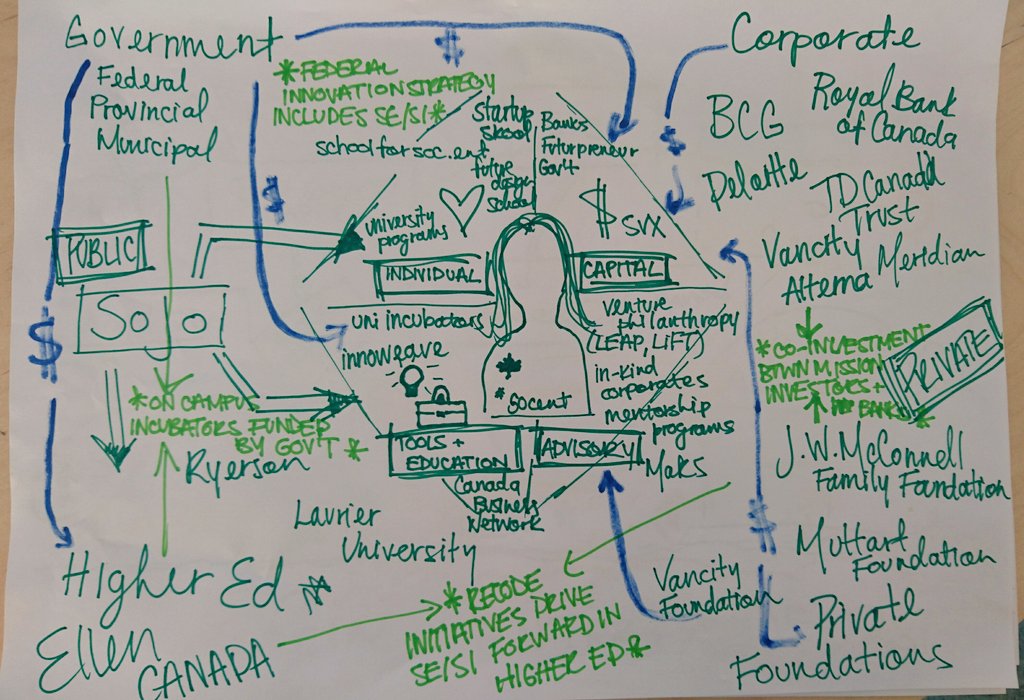 Government
Federal
Provincial
Municipal
$
* FEDERAL
INNOVATION STRATEGY
INCLUDES SE/SI *
$
Corporate
BCG
Royal Bank
of Canada
Deloitte
TD Canada
Trust
Vancity
Alterna Meridian
$
startup
skool
school for soc.ent
future
design
school
Banks
Futurpreneur
Gov't
$
SVX
university
programs
INDIVIDUAL
CAPITAL
PUBLIC
$
uni incubators
innoweave
venture
philanthropy
(LEAP, LIFT)
in-kind
corporates
mentorship
programs
* socent
TOOLS +
EDUCATION
ADVISORY
MaRS
Canada
Business
Network
* ON CAMPUS
INCUBATORS FUNDED
BY GOV'T *
* CO-INVESTMENT
BTWN MISSION
INVESTORS +
BANKS *
PRIVATE
Ryerson
Laurier
University
J.W. McConnell
Family Foundation
Muttart
Foundation
$
Private
Foundations
Vancity
Foundation
* RECODE
INITIATIVES DRIVE
SE/SI FORWARD IN
HIGHER ED *
Higher Ed
Ellen
CANADA